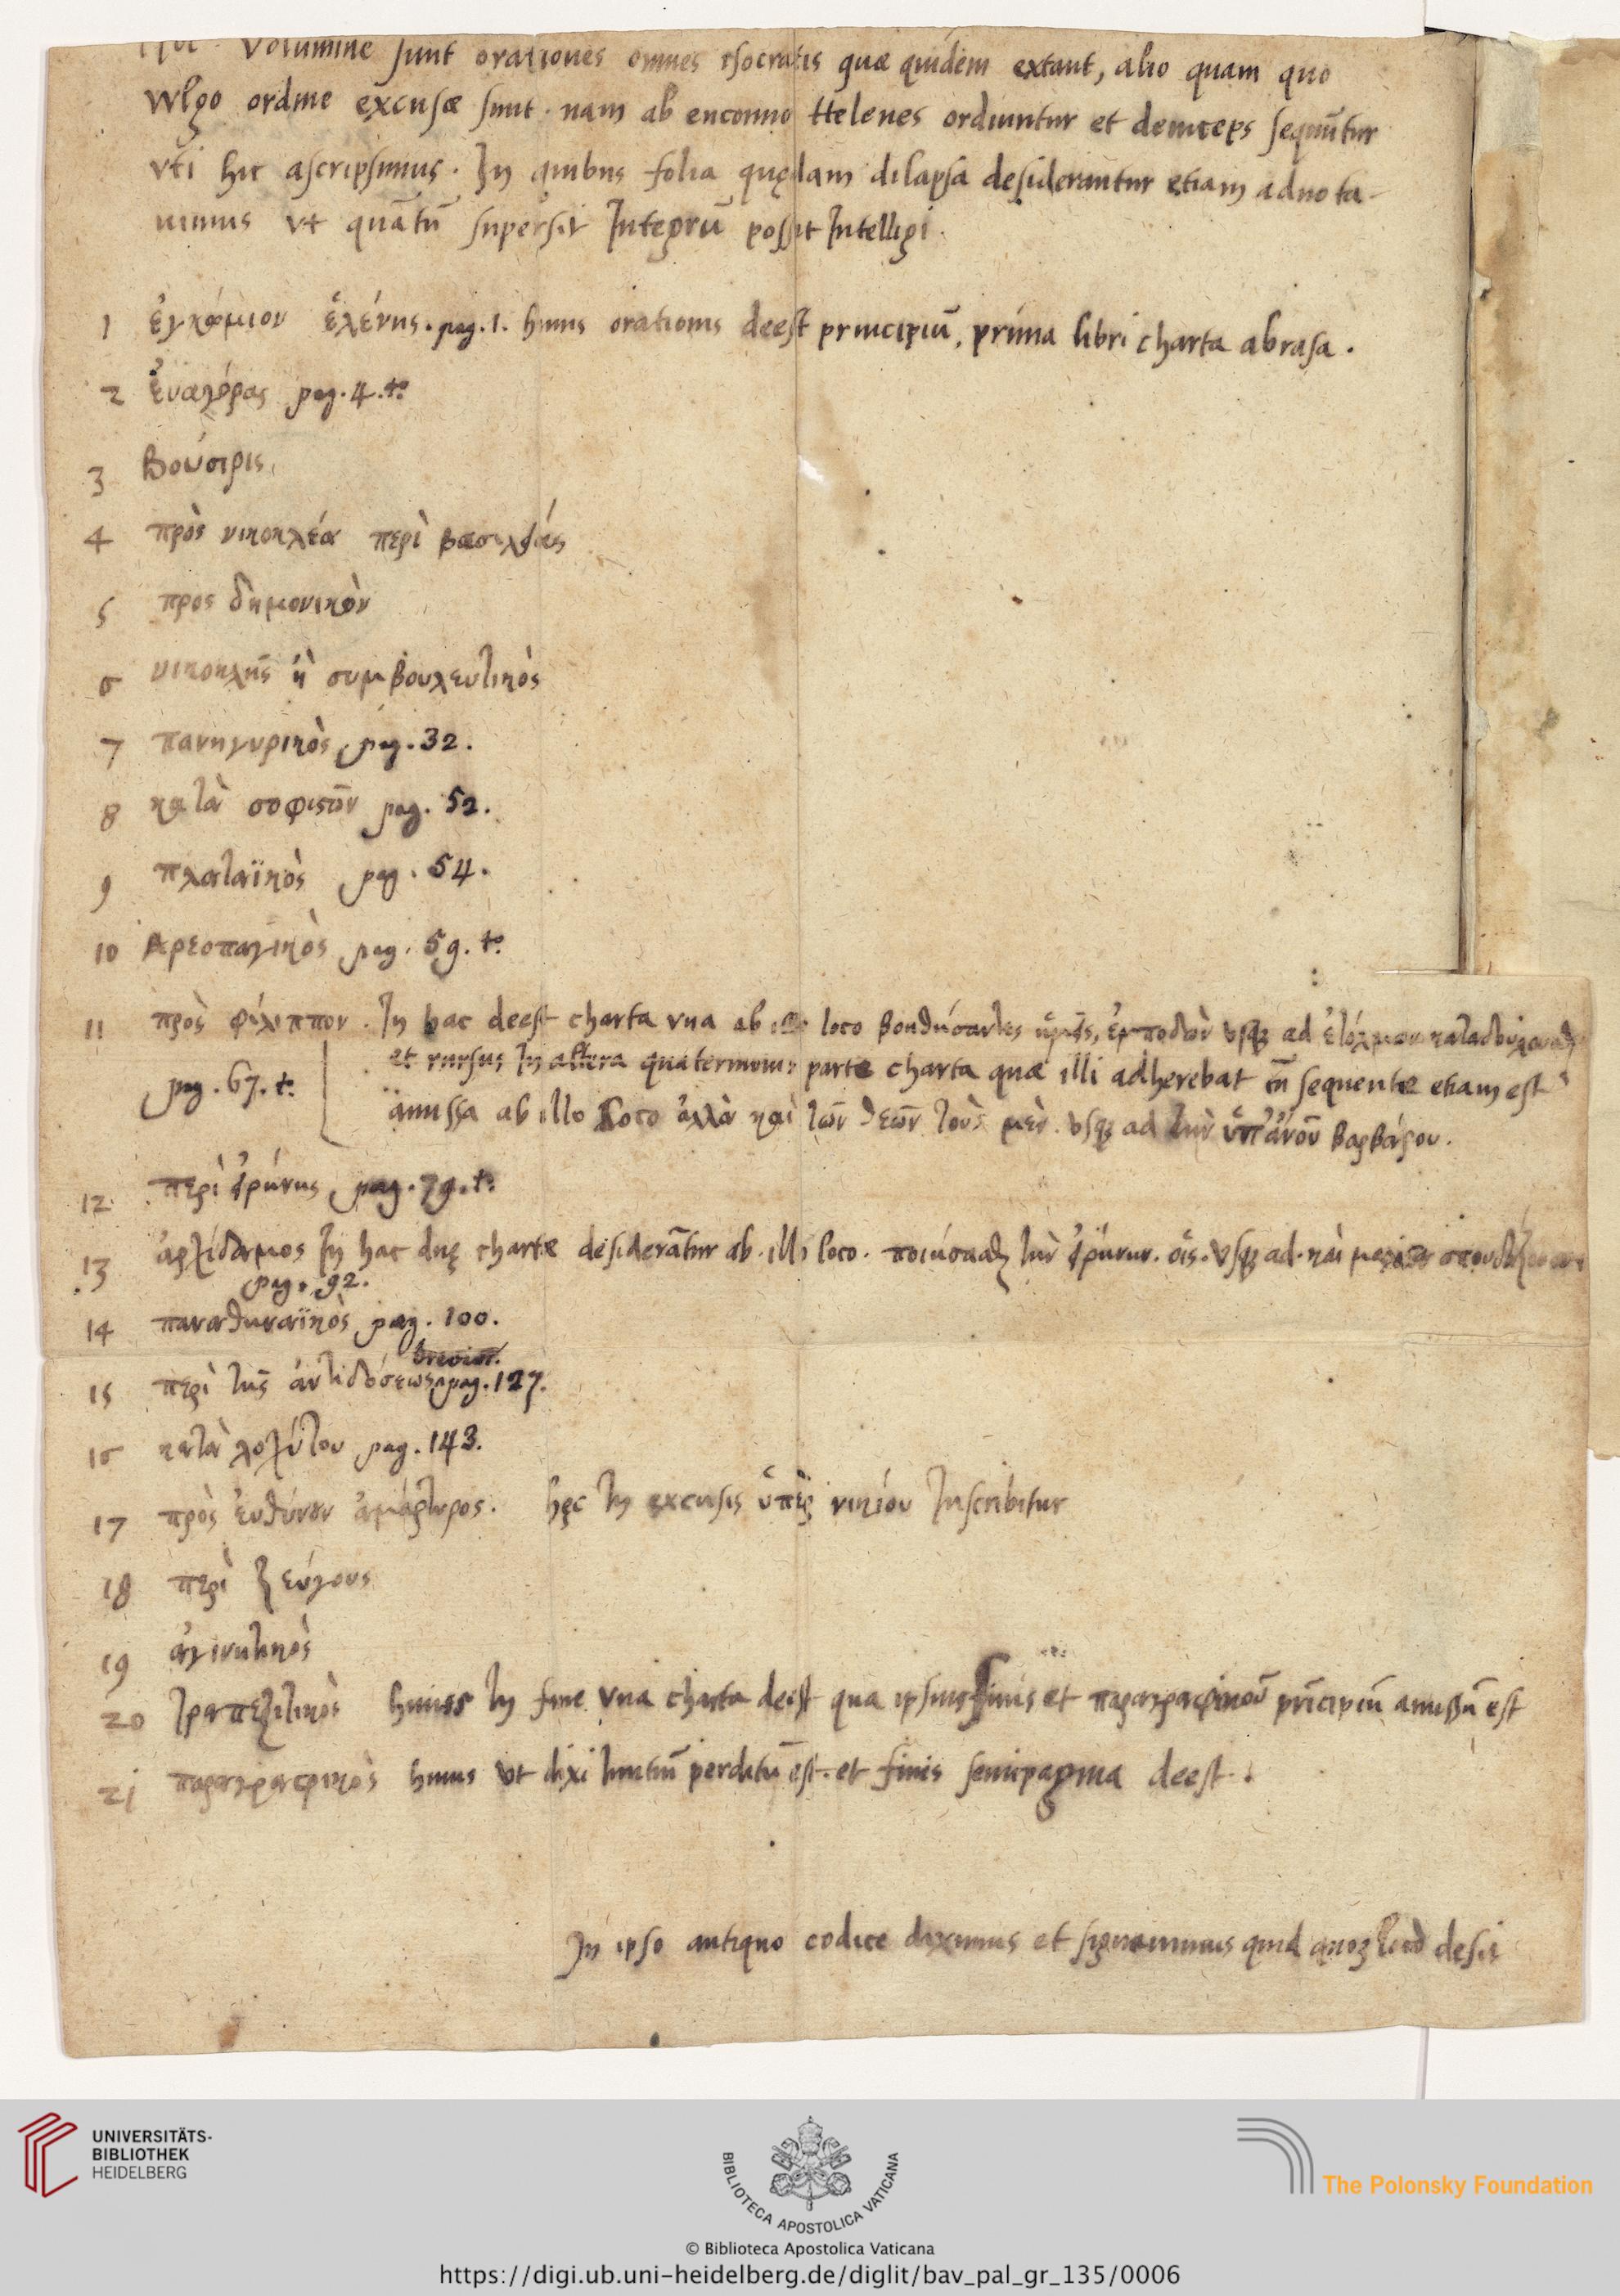 Hoc volumine sunt orationes omnes isocratis quæ quidem extant, alio quam quo
vvlgo ordine excusæ sunt. nam ab encomio Helenes ordiuntur et deinceps sequūtur
vti hic ascripsimus. In quibus folia quędam dilapsa desiderantur etiam adnota-
uimus vt quātū supersit Integrū possit Intelligi.
1 ἐγκώμιον ἑλένης. pag. 1. huius orationis deest principiū, prima libri charta abrasa.
2 ἐυαγόρας pag. 4. tᵒ
3 Βούσιρις
4 πρὸς νικοκλέα περὶ βασιλείας
5 προς δημονικὸν
6 νικοκλῆς ἢ συμβουλευτικὸς
7 πανηγυρικὸς pag. 32.
8 κατὰ σοφιστῶν pag. 52.
9 πλαταϊκὸς pag. 54.
10 Αρεοπαγικὸς pag. 59. tᵒ
11 πρὸς φίλιππον. In hac deest charta vna ab loco βοηθήσαντες ἡμῖν, ἐμποδὼν vsq; ad
et rursus In altera quaternionis parte charta quæ illi adherebat cū sequente etiam est
pag. 67. tᵒ
amissa ab illo loco ἀλλὰ καὶ τῶν θεῶν τοὺς μὲν vsq; ad τὴν βαρβάρου.
12 περὶ εἰρήνης pag. 79. tᵒ
13 ἀρχίδαμος In hac duę chartæ desiderātur ab illo loco. ποιήσασθαι τὴν εἰρήνην. οἷς. vsq; ad καὶ
pag. 92.
14 παναθηναϊκὸς pag. 100.
breuior.
15 περὶ τῆς ἀντιδόσεως pag. 127.
16 κατὰ λοχίτου pag. 143.
17 πρὸς ἐυθύνουν ἀμάρτυρος. hęc In excusis ὑπὲρ νικίου Inscribitur
18 περὶ ζεύγους
19 αἰγινητικὸς
20 τραπεζιτικὸς huius In fine vna charta deest qua ipsius finis et παραγραφικοῦ prīcipiū amissū est
21 παραγραφικὸς huius vt dixi Initiū perditū est. et finis semipagina deest.
In ipso antiquo codice diximus et signauimus quid quoq; loco desit
UNIVERSITÄTS-
BIBLIOTHEK
HEIDELBERG
BIBLIOTECA APOSTOLICA VATICANA
The Polonsky Foundation
© Biblioteca Apostolica Vaticana
https://digi.ub.uni-heidelberg.de/diglit/bav_pal_gr_135/0006